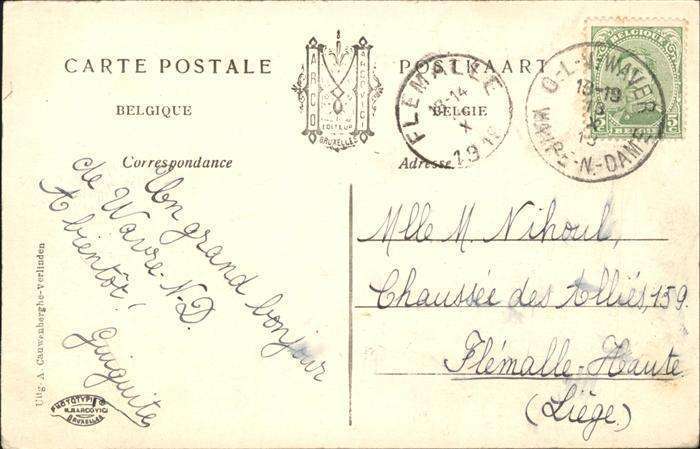 CARTE POSTALE
POSTKAART
BELGIQUE
BELGIE
Correspondance
Adresse
MARCO
MARCOVICI
EDITEUR
BRUXELLES
FLÉMALLE
13-14
X
19
BELGIQUE
5
BELGIË
O-L-V-WAVER
18-19
18
X
19
WAVRE-N.-DAME
Un grand bonjour
de Wavre-N-D.
A bientôt!
Guiguite
Mlle M. Nihoul,
Chaussée des Alliés, 159
Flémalle-Haute
(Liège.)
Uitg. A. Cauwenberghe-Verlinden
PHOTOTYPIE
H. MARCOVICI
BRUXELLES